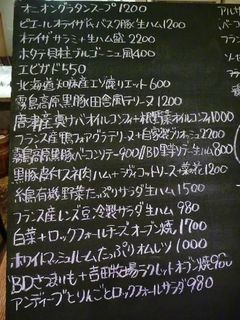 オニオングラタンスープ 1200
ピエールオテイザ バスク豚 生ハム 1200
オテイザ サラミ + 生ハム 2200
ホタテ貝柱 ブルゴーニュ風 400
エビサダ 550
北海道 知床産エゾ鹿リエット 600
霧島高原黒豚 田舎風テリーヌ 1200
唐津産真サバ オイルコンフィ + 根野菜オイルコンフィ 1000
フランス産鴨フォアグラテリーヌ + 自家製ブリオッシュ 2200
霧島高原黒豚ベーコンソテー 900 // BD 生ハム 800
黒豚 ハム + 菜の花 1200
糸島有機野菜たっぷりサラダ 生ハム 1500
フランス産レンズ豆 冷製サラダ 生ハム 980
白菜 + ロックフォールチーズ オーブン焼 1700
ホワイトマッシュルームたっぷりオムレツ 1000
BDさつまいも + 吉田牧場ラクレット オーブン焼 900
アンディーブとりんごとロックフォールサラダ 980